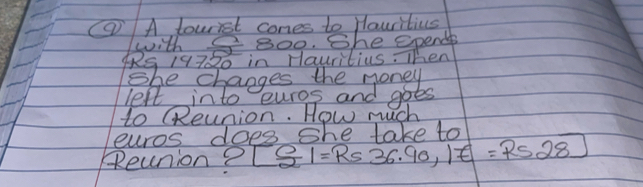 9) A tourist comes to Mauritius
with £ 800. She spends
Rs 14720 in Mauritius. Then
she changes the money
left into euros and goes
to Reunion. How much
euros does she take to
Reunion? [£1=Rs 36.90, 1€ = Rs 28]